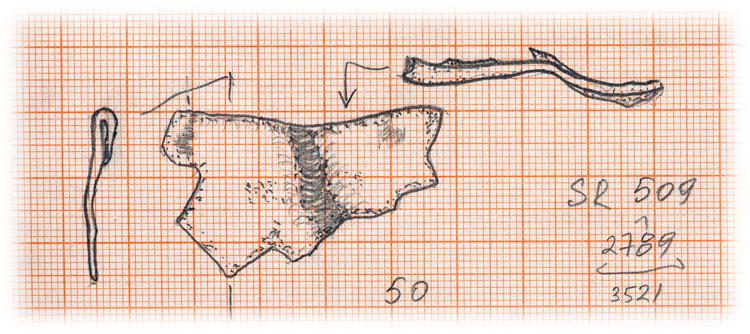 SR 509
2789
3521
50